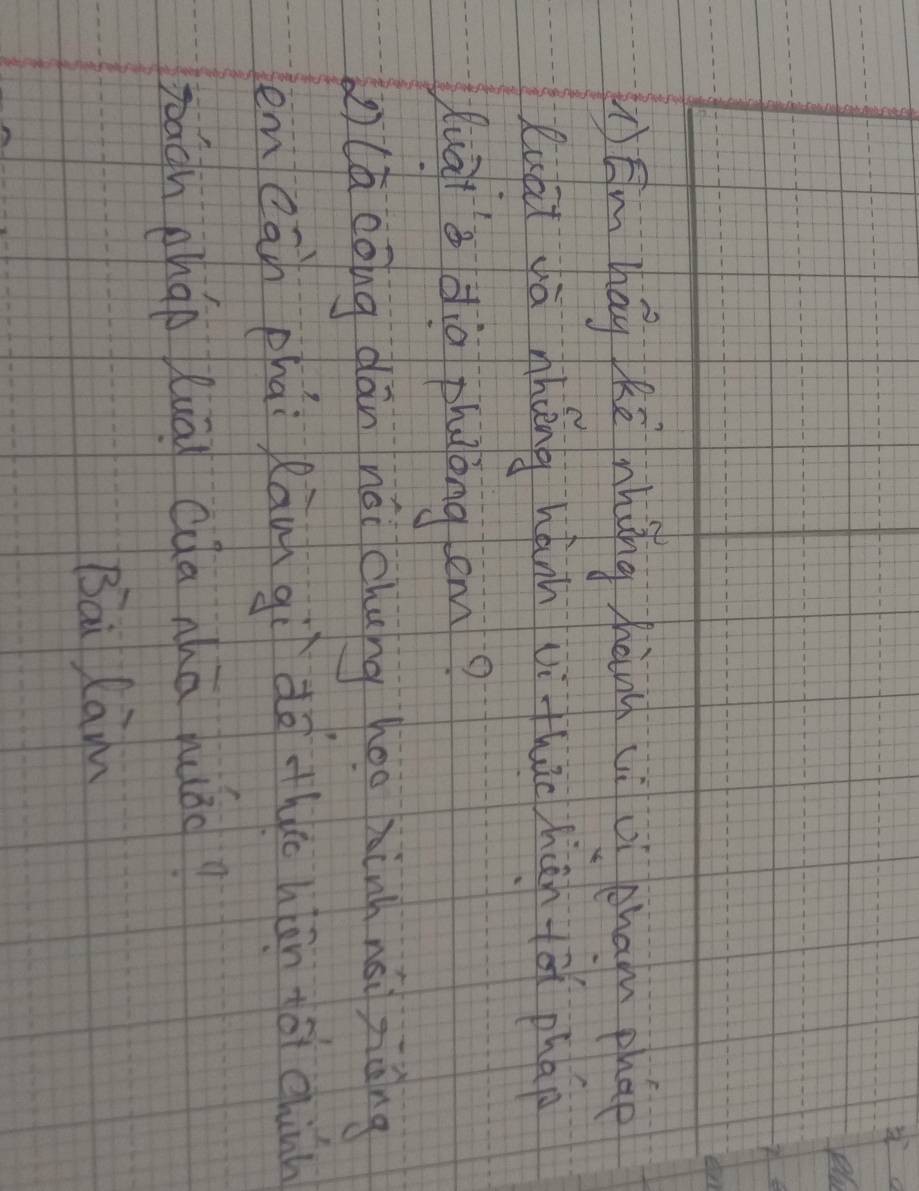 1) Em hãy kể những hành vi vi phạm pháp
luật và những hành vi thực hiện tốt pháp
luật ở địa phương em?
2) là công dân nói chung học sinh nói riêng
em cần phải làm gì để thực hiện tốt chính
sách pháp luật của nhà nước?
Bài làm